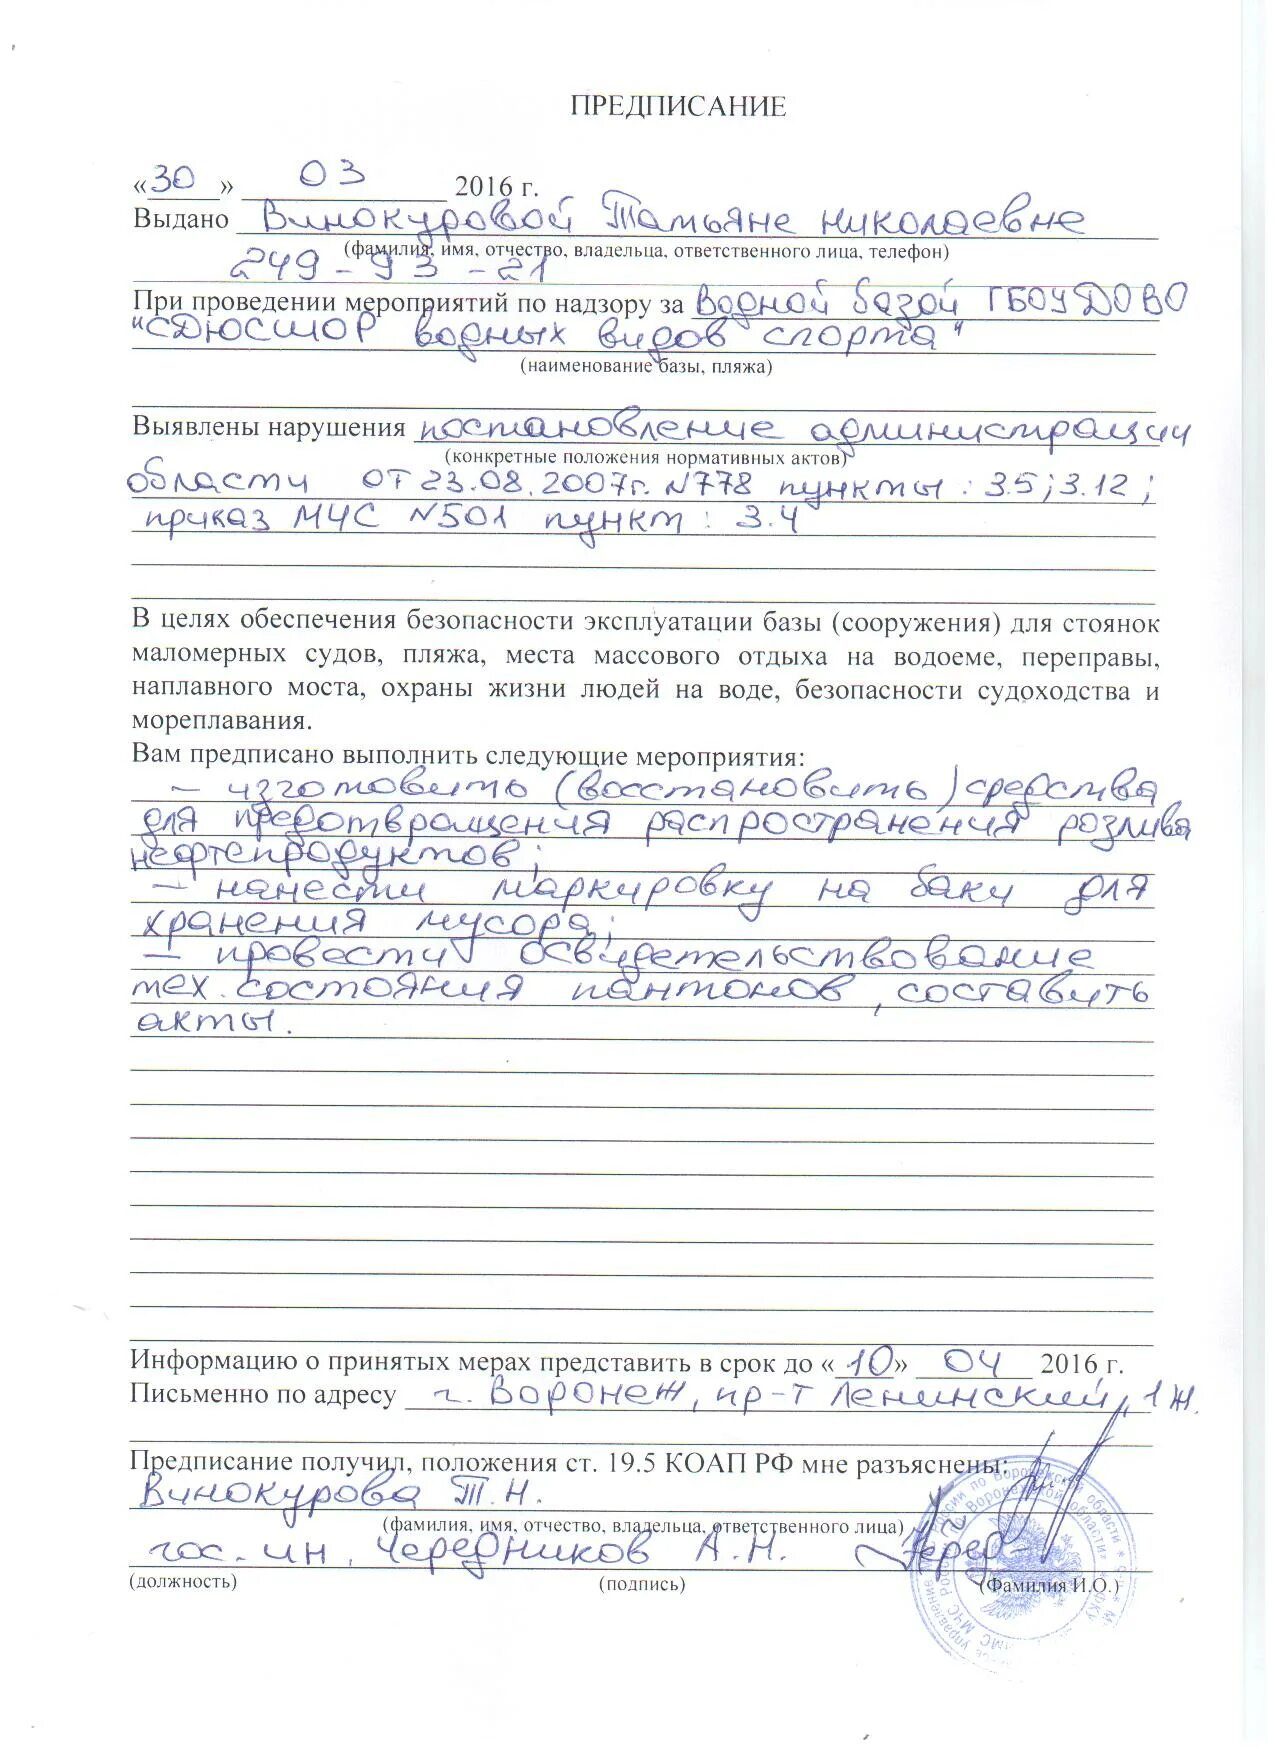 ПРЕДПИСАНИЕ
«30» 03 2016 г.
Выдано Винокуровой Татьяне Николаевне
(фамилия, имя, отчество, владельца, ответственного лица, телефон)
249-93-21
При проведении мероприятий по надзору за водной базой ГБОУДОВО
"СДЮСШОР водных видов спорта"
(наименование базы, пляжа)
Выявлены нарушения постановление администрации
(конкретные положения нормативных актов)
области от 23.08.2007г. №778 пункты: 3.5; 3.12;
приказ МЧС №501 пункт: 3.4
В целях обеспечения безопасности эксплуатации базы (сооружения) для стоянок
маломерных судов, пляжа, места массового отдыха на водоеме, переправы,
наплавного моста, охраны жизни людей на воде, безопасности судоходства и
мореплавания.
Вам предписано выполнить следующие мероприятия:
- изготовить (восстановить) средства
для предотвращения распространения розлива
нефтепродуктов;
- нанести маркировку на баку для
хранения мусора;
- провести освидетельствование
тех. состояния пантонов, составить
акты.
Информацию о принятых мерах представить в срок до «10» 04 2016 г.
Письменно по адресу г. Воронеж, пр-т Ленинский, 1ж.
Предписание получил, положения ст. 19.5 КОАП РФ мне разъяснены:
Винокурова Т.Н.
(фамилия, имя, отчество, владельца, ответственного лица)
гос. ин. Чередников А.Н.
(должность) (подпись) (Фамилия И.О.)